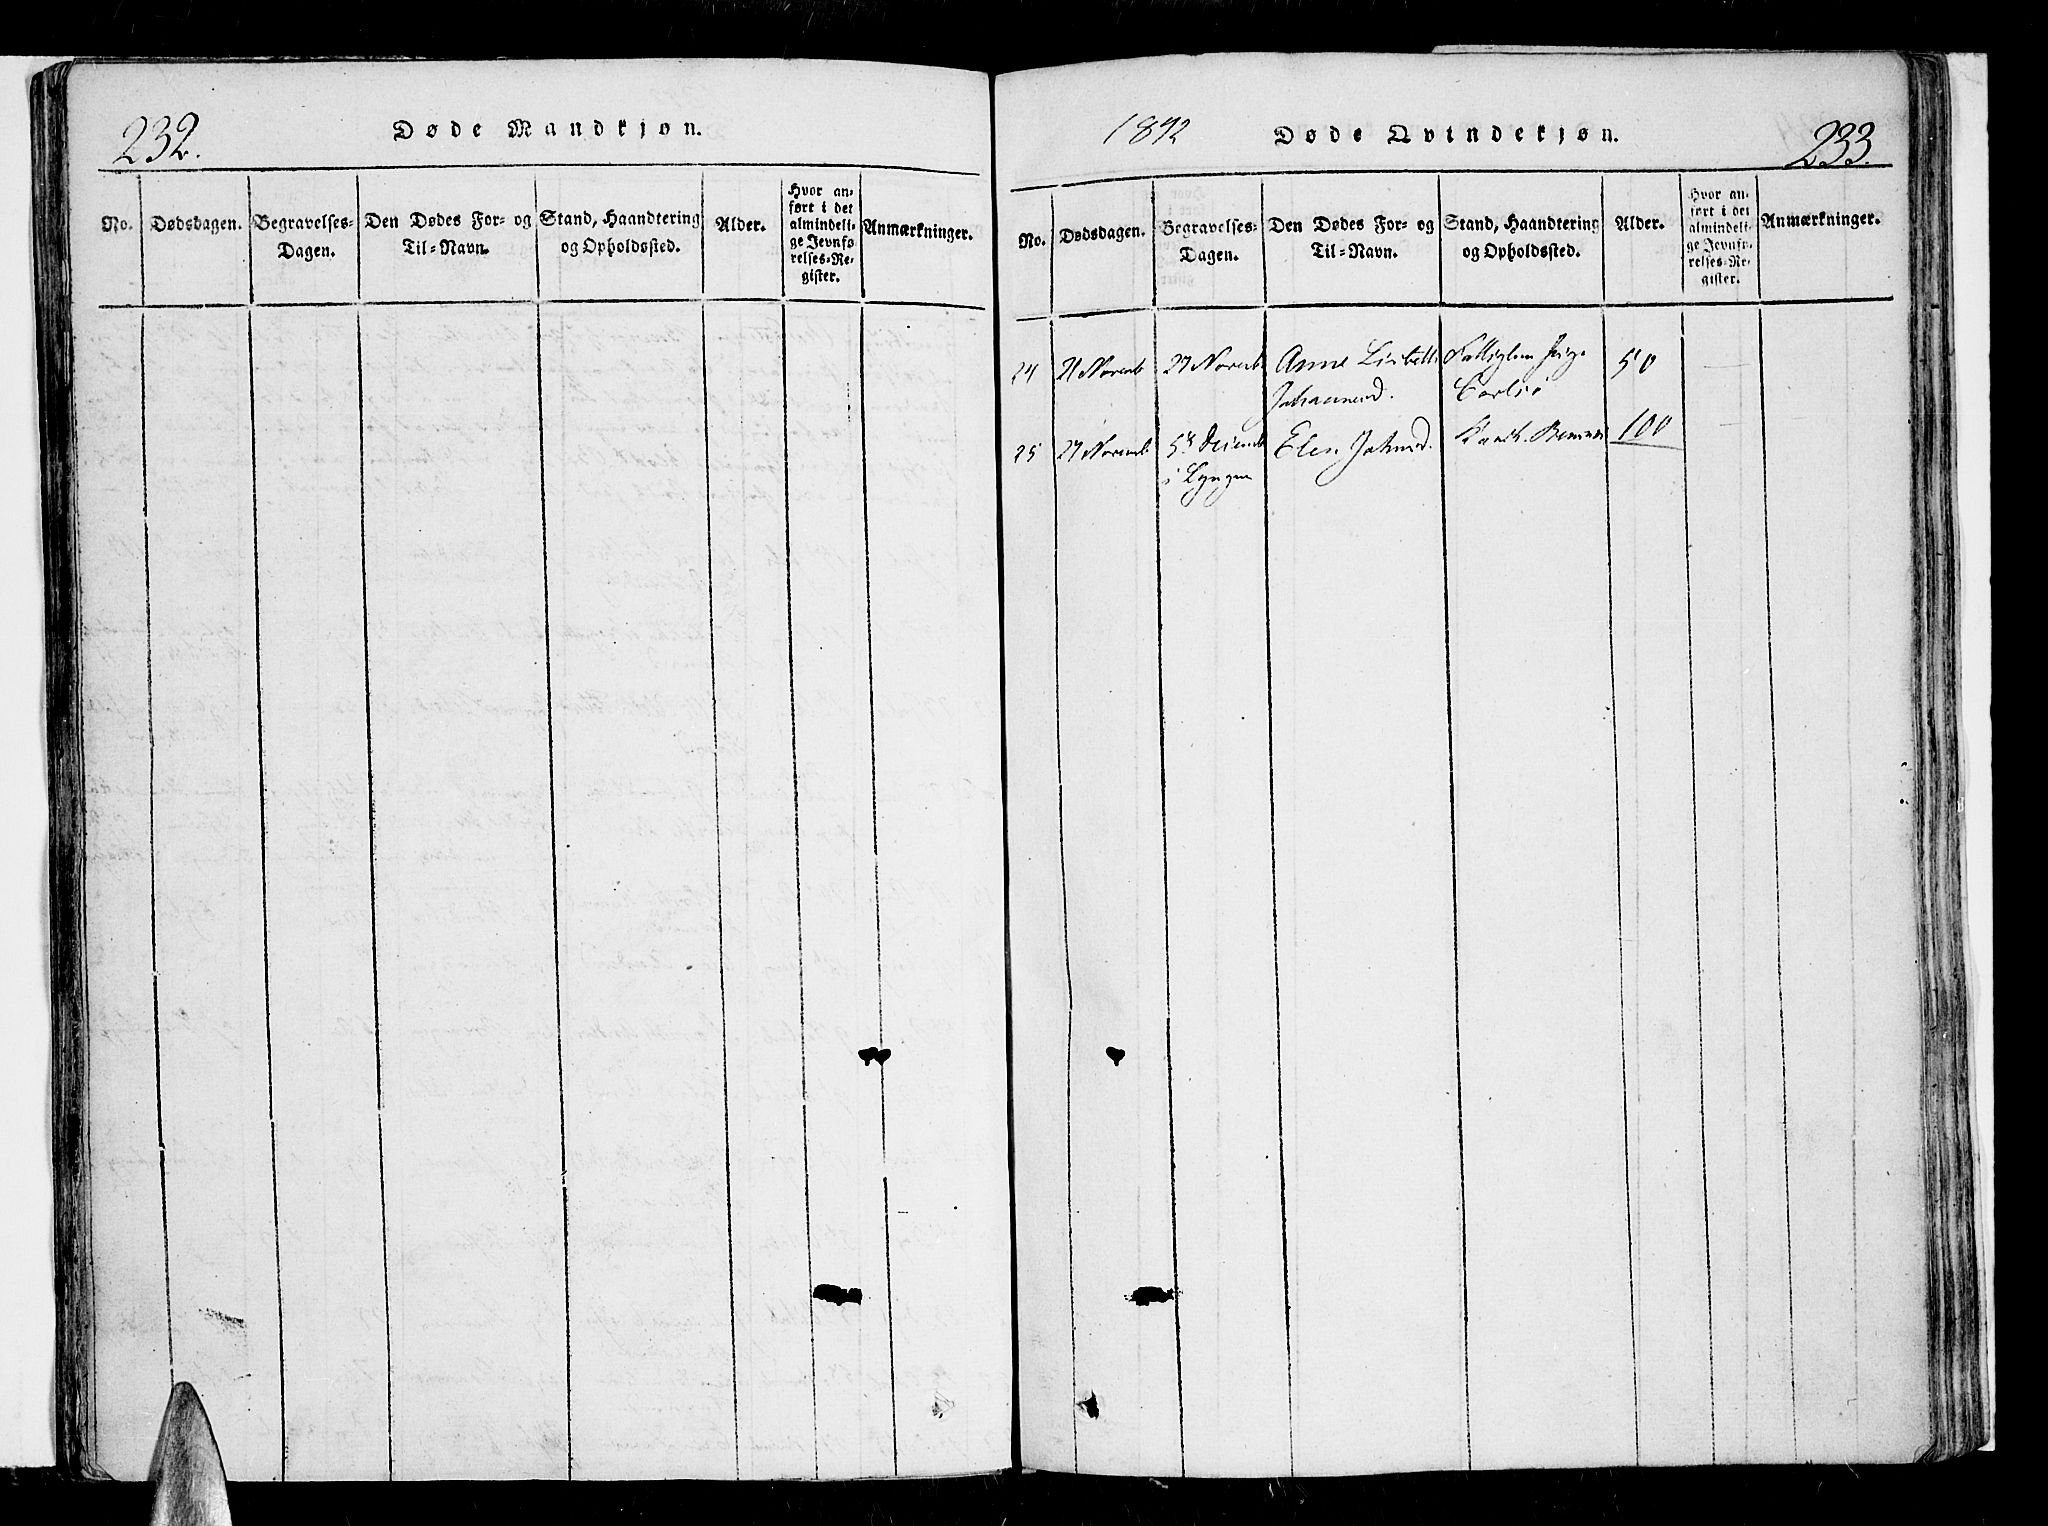 232.
Døde Mandkjøn.
No.
Dødsdagen.
Begravelses-
Dagen.
Den Dødes For- og
Til-Navn.
Stand, Haandtering
og Opholdssted.
Alder.
Hvor an-
ført i det
almindeli-
ge Jevnfø-
relses-Re-
gister.
Anmærkninger.
1842
Døde Qvindekjøn.
233.
No.
Dødsdagen.
Begravelses-
Dagen.
Den Dødes For- og
Til-Navn.
Stand, Haandtering
og Opholdssted.
Alder.
Hvor an-
ført i det
almindeli-
ge Jevnfø-
relses-Re-
gister.
Anmærkninger.
24 21 Novemb 27 Novemb Anne Lisbeth Fattiglem 50
Johannesd. Carlsø
25 27 Novemb 5te Decemb Elen Johnsd. 100
i Lyngen